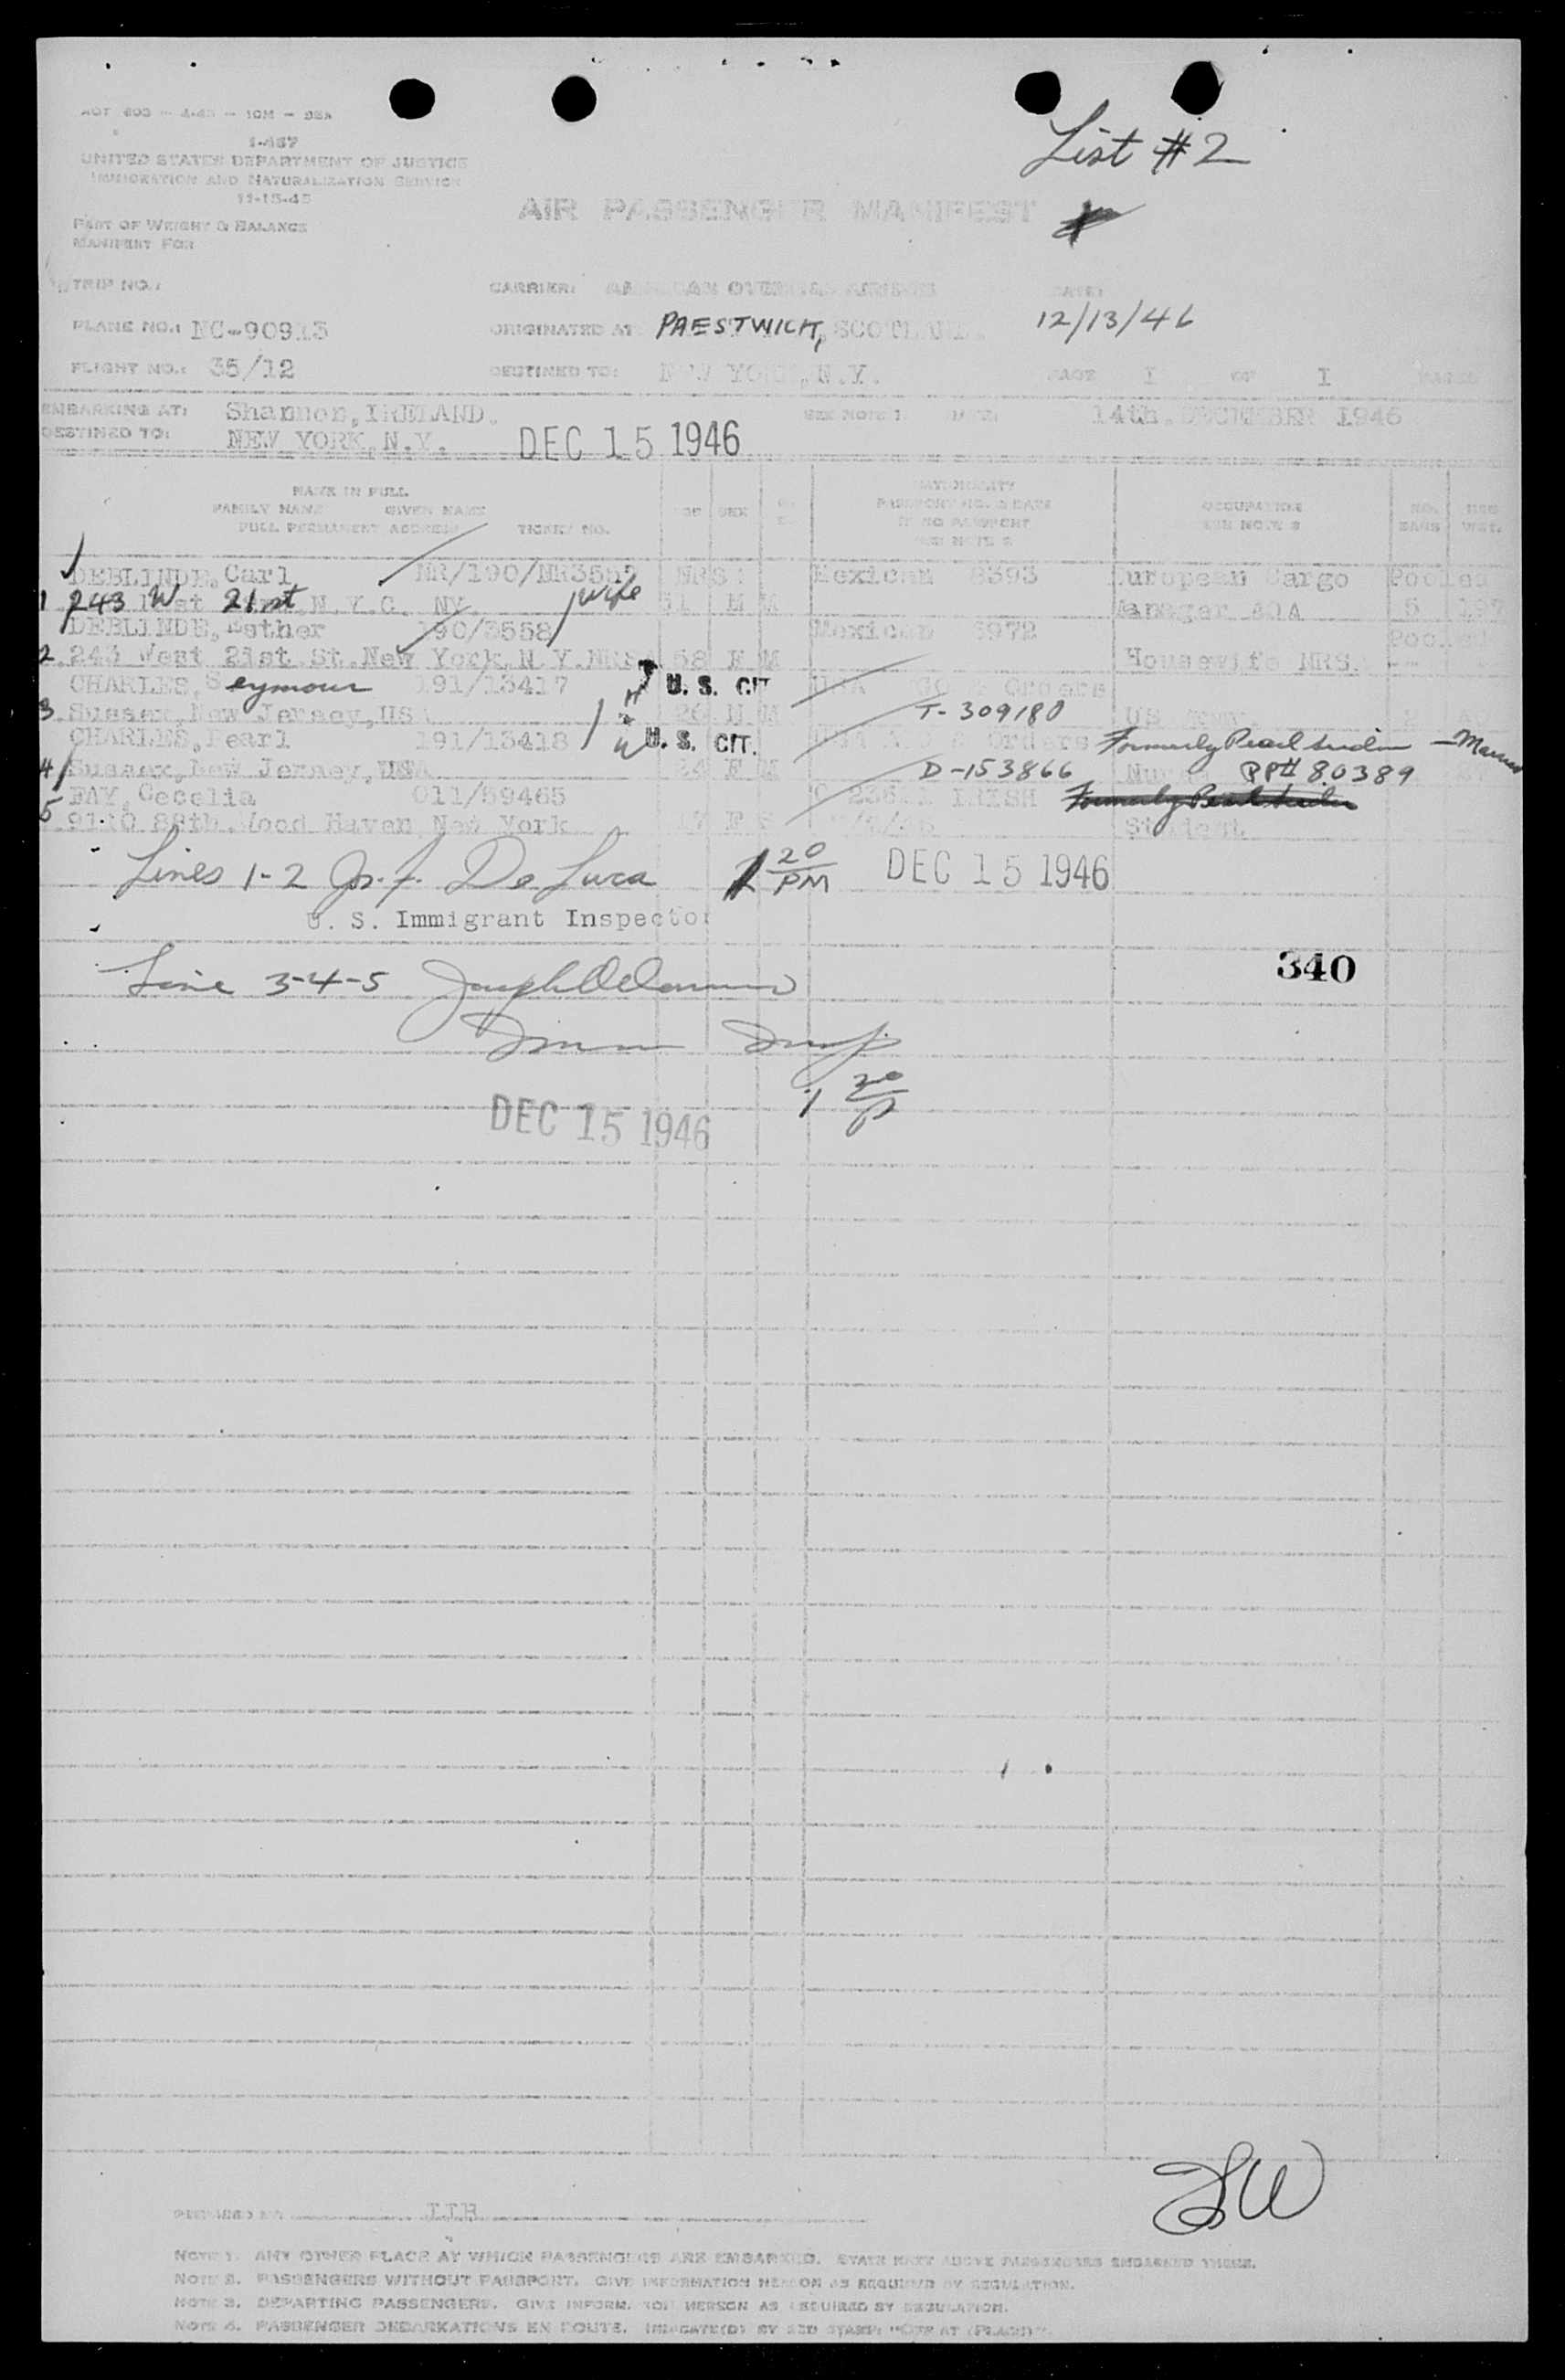 List #2
1-457
UNITED STATES DEPARTMENT OF JUSTICE
IMMIGRATION AND NATURALIZATION SERVICE
11-15-45
AIR PASSENGER MANIFEST
PART OF WEIGHT & BALANCE
MANIFEST FOR
TRIP NO.:
CARRIER:
DATE:
PLANE NO.: NC-90913
ORIGINATED AT PRESTWICK, SCOTLAND.
12/13/46
FLIGHT NO.: 35/12
DESTINED TO: NEW YORK, N.Y.
PAGE I OF I PAGES
EMBARKING AT: Shannon, IRELAND.
SEE NOTE 1 DATE: 14th. DECEMBER 1946
DESTINED TO: NEW YORK, N.Y.
DEC 15 1946
NAME IN FULL
FAMILY NAME GIVEN NAME
FULL PERMANENT ADDRESS TICKET NO.
AGE SEX
NATIONALITY
PASSPORT NO. & DATE
IF NO PASSPORT
SEE NOTE 2
OCCUPATION
SEE NOTE 3
NO. BAGS
WGT.
DEBLINDE, Carl NR/190/NR3557 MRS Mexican 8393 European Cargo Pooled
1 243 W 21st N.Y.C. NY. wife 51 M M Manager AOA 5 197
DEBLINDE, Esther 190/3558 Mexican 3972 Pooled
2. 243 West 21st. St. New York N.Y. MRS. 58 F M Housewife MRS. --
CHARLES, Seymour 191/13417 U. S. CIT Orders
3. Sussex, New Jersey, US 26 M M T-309180
CHARLES, Pearl 191/13418 U. S. CIT. Orders Formerly Pearl
4 Sussex, New Jersey, USA 24 F M D-153866 PP# 80389
5 FAY, Cecelia 011/59465 IRISH
9110 88th. Wood Haven New York 17 F S Student
Lines 1-2 Jos. F. De Luca 1 20 PM DEC 15 1946
U. S. Immigrant Inspector
340
Line 3-4-5 Joseph
Imm Insp
1 20 P
DEC 15 1946
SW
PREPARED BY
NOTE 1. ANY OTHER PLACE AT WHICH PASSENGERS ARE EMBARKED. STATE NEXT ABOVE PASSENGERS EMBARKED THERE.
NOTE 2. PASSENGERS WITHOUT PASSPORT. GIVE INFORMATION HEREON AS REQUIRED BY REGULATION.
NOTE 3. DEPARTING PASSENGERS. GIVE INFORMATION HEREON AS REQUIRED BY REGULATION.
NOTE 4. PASSENGER DEBARKATIONS EN ROUTE. INDICATE(D) BY RED STAMP: "OFF AT (PLACE)".